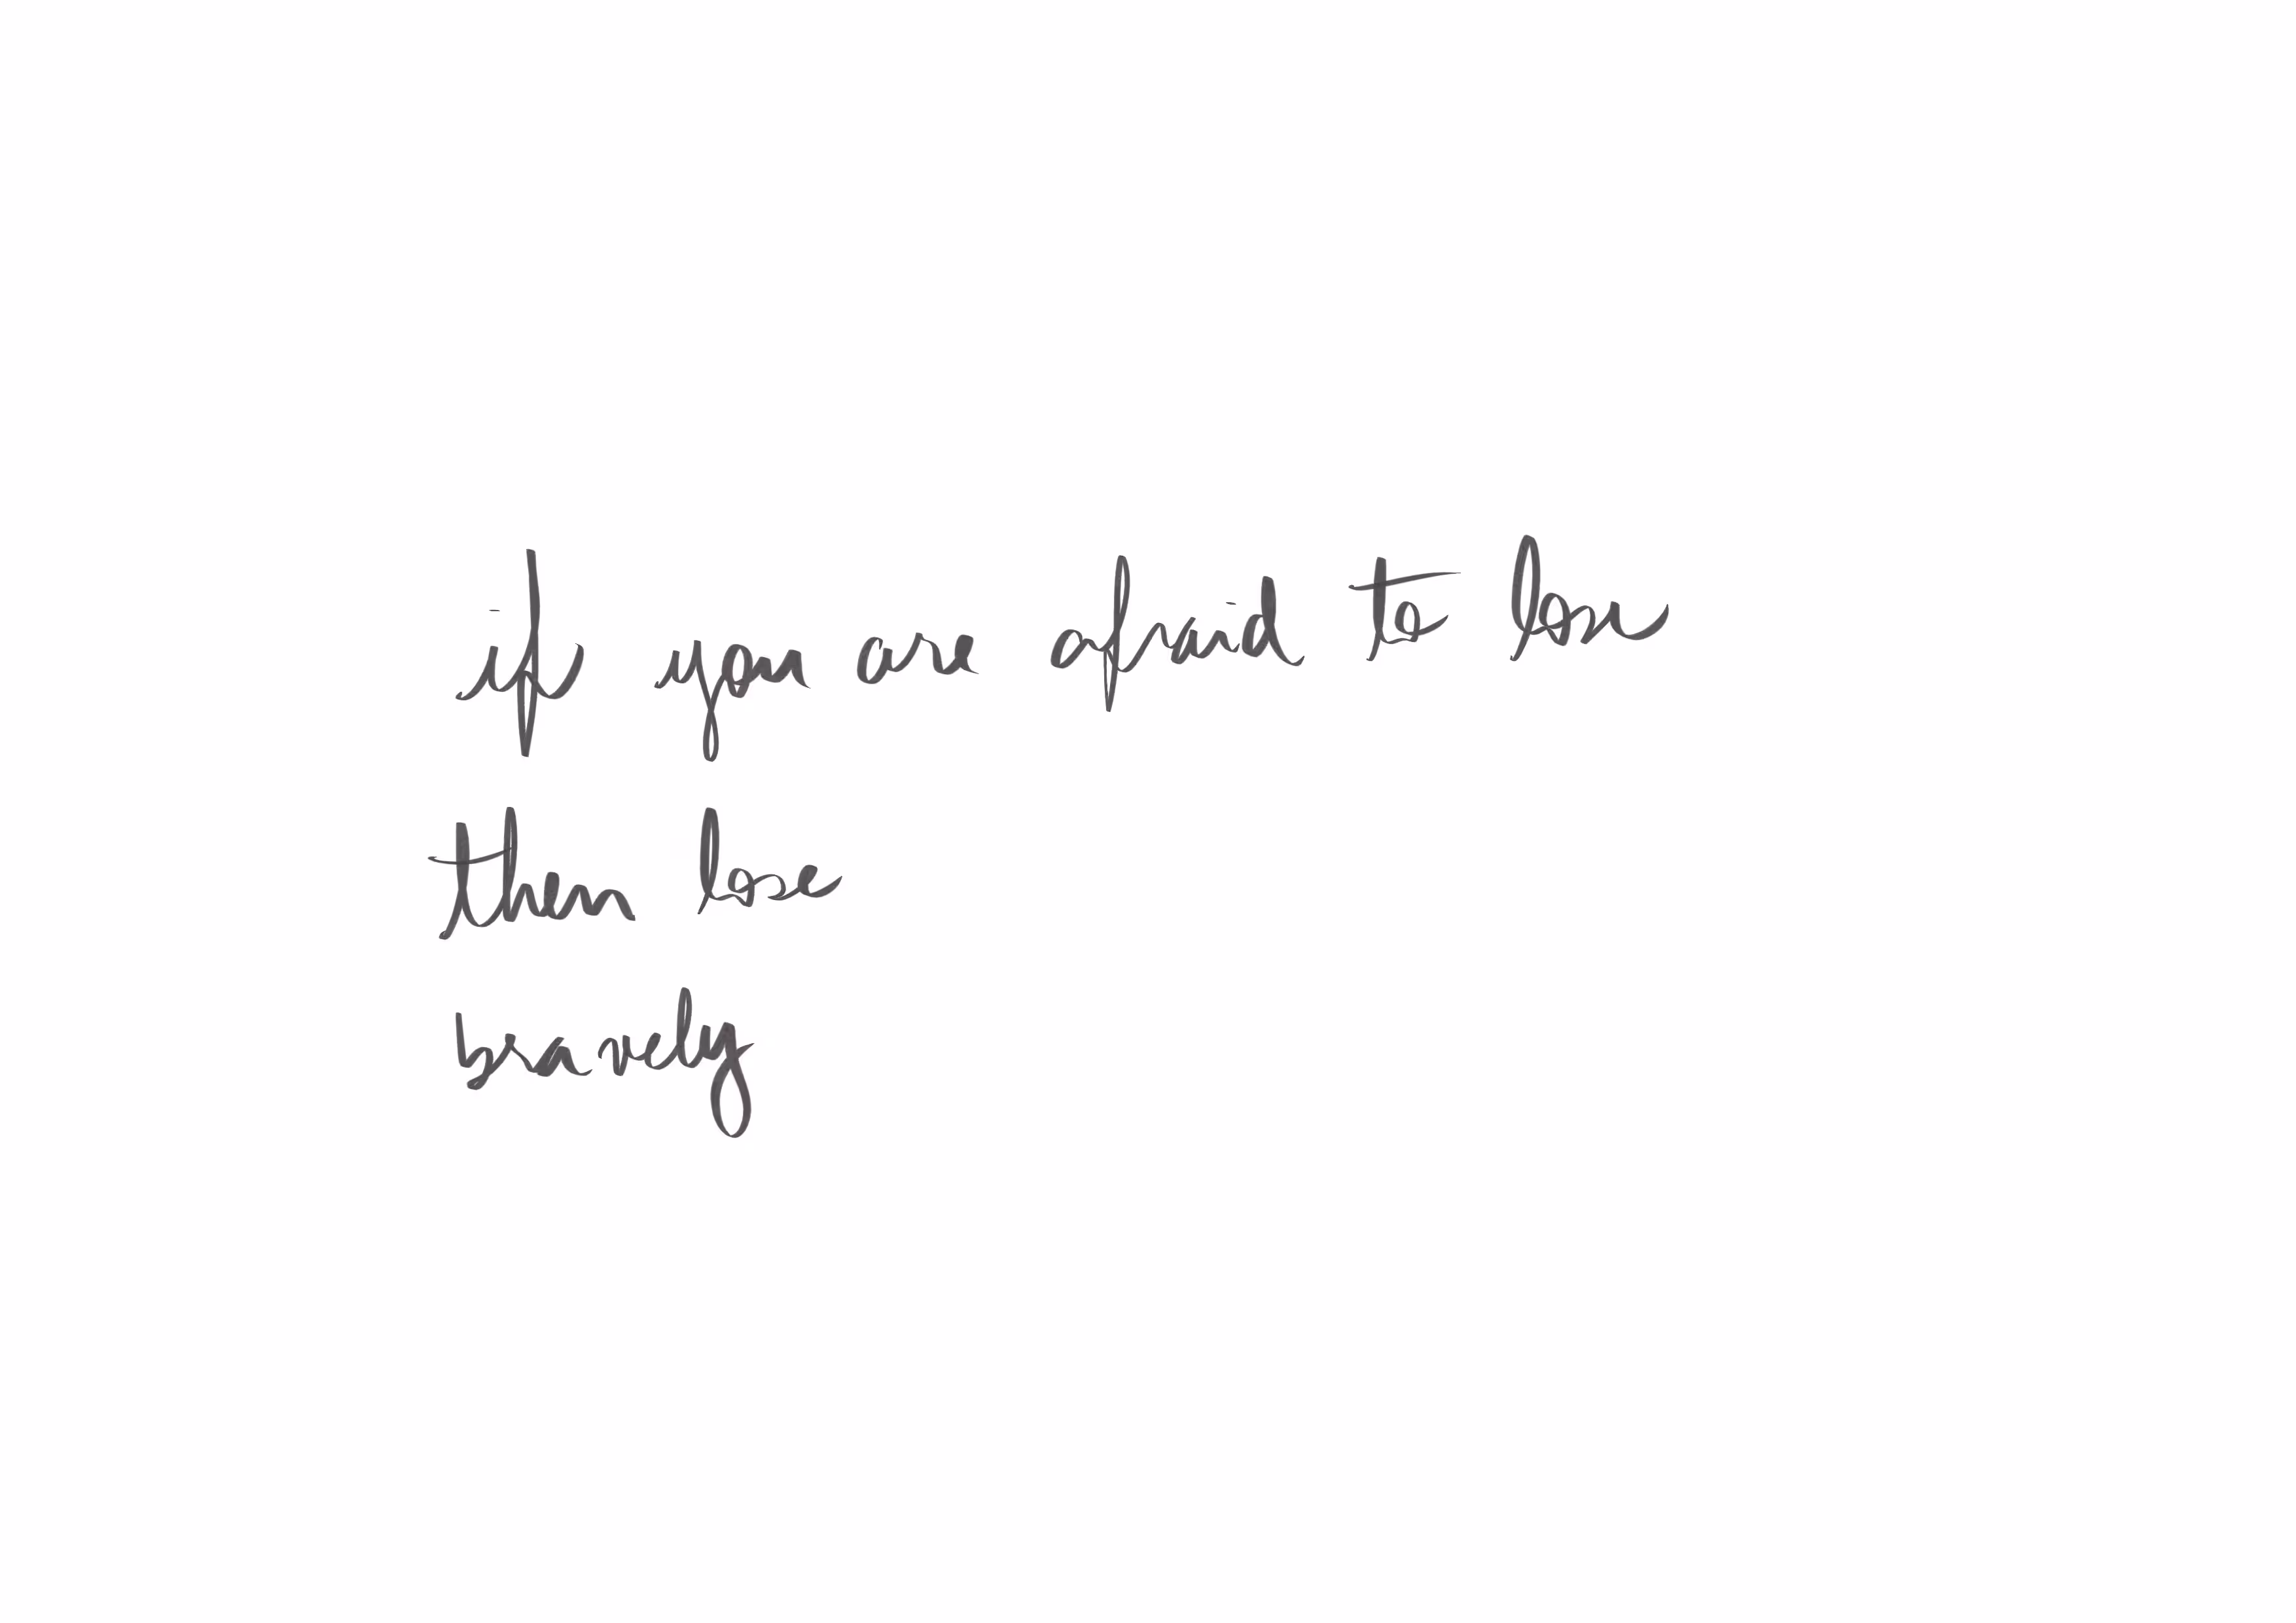 if you are afraid to lose
then lose
bravely